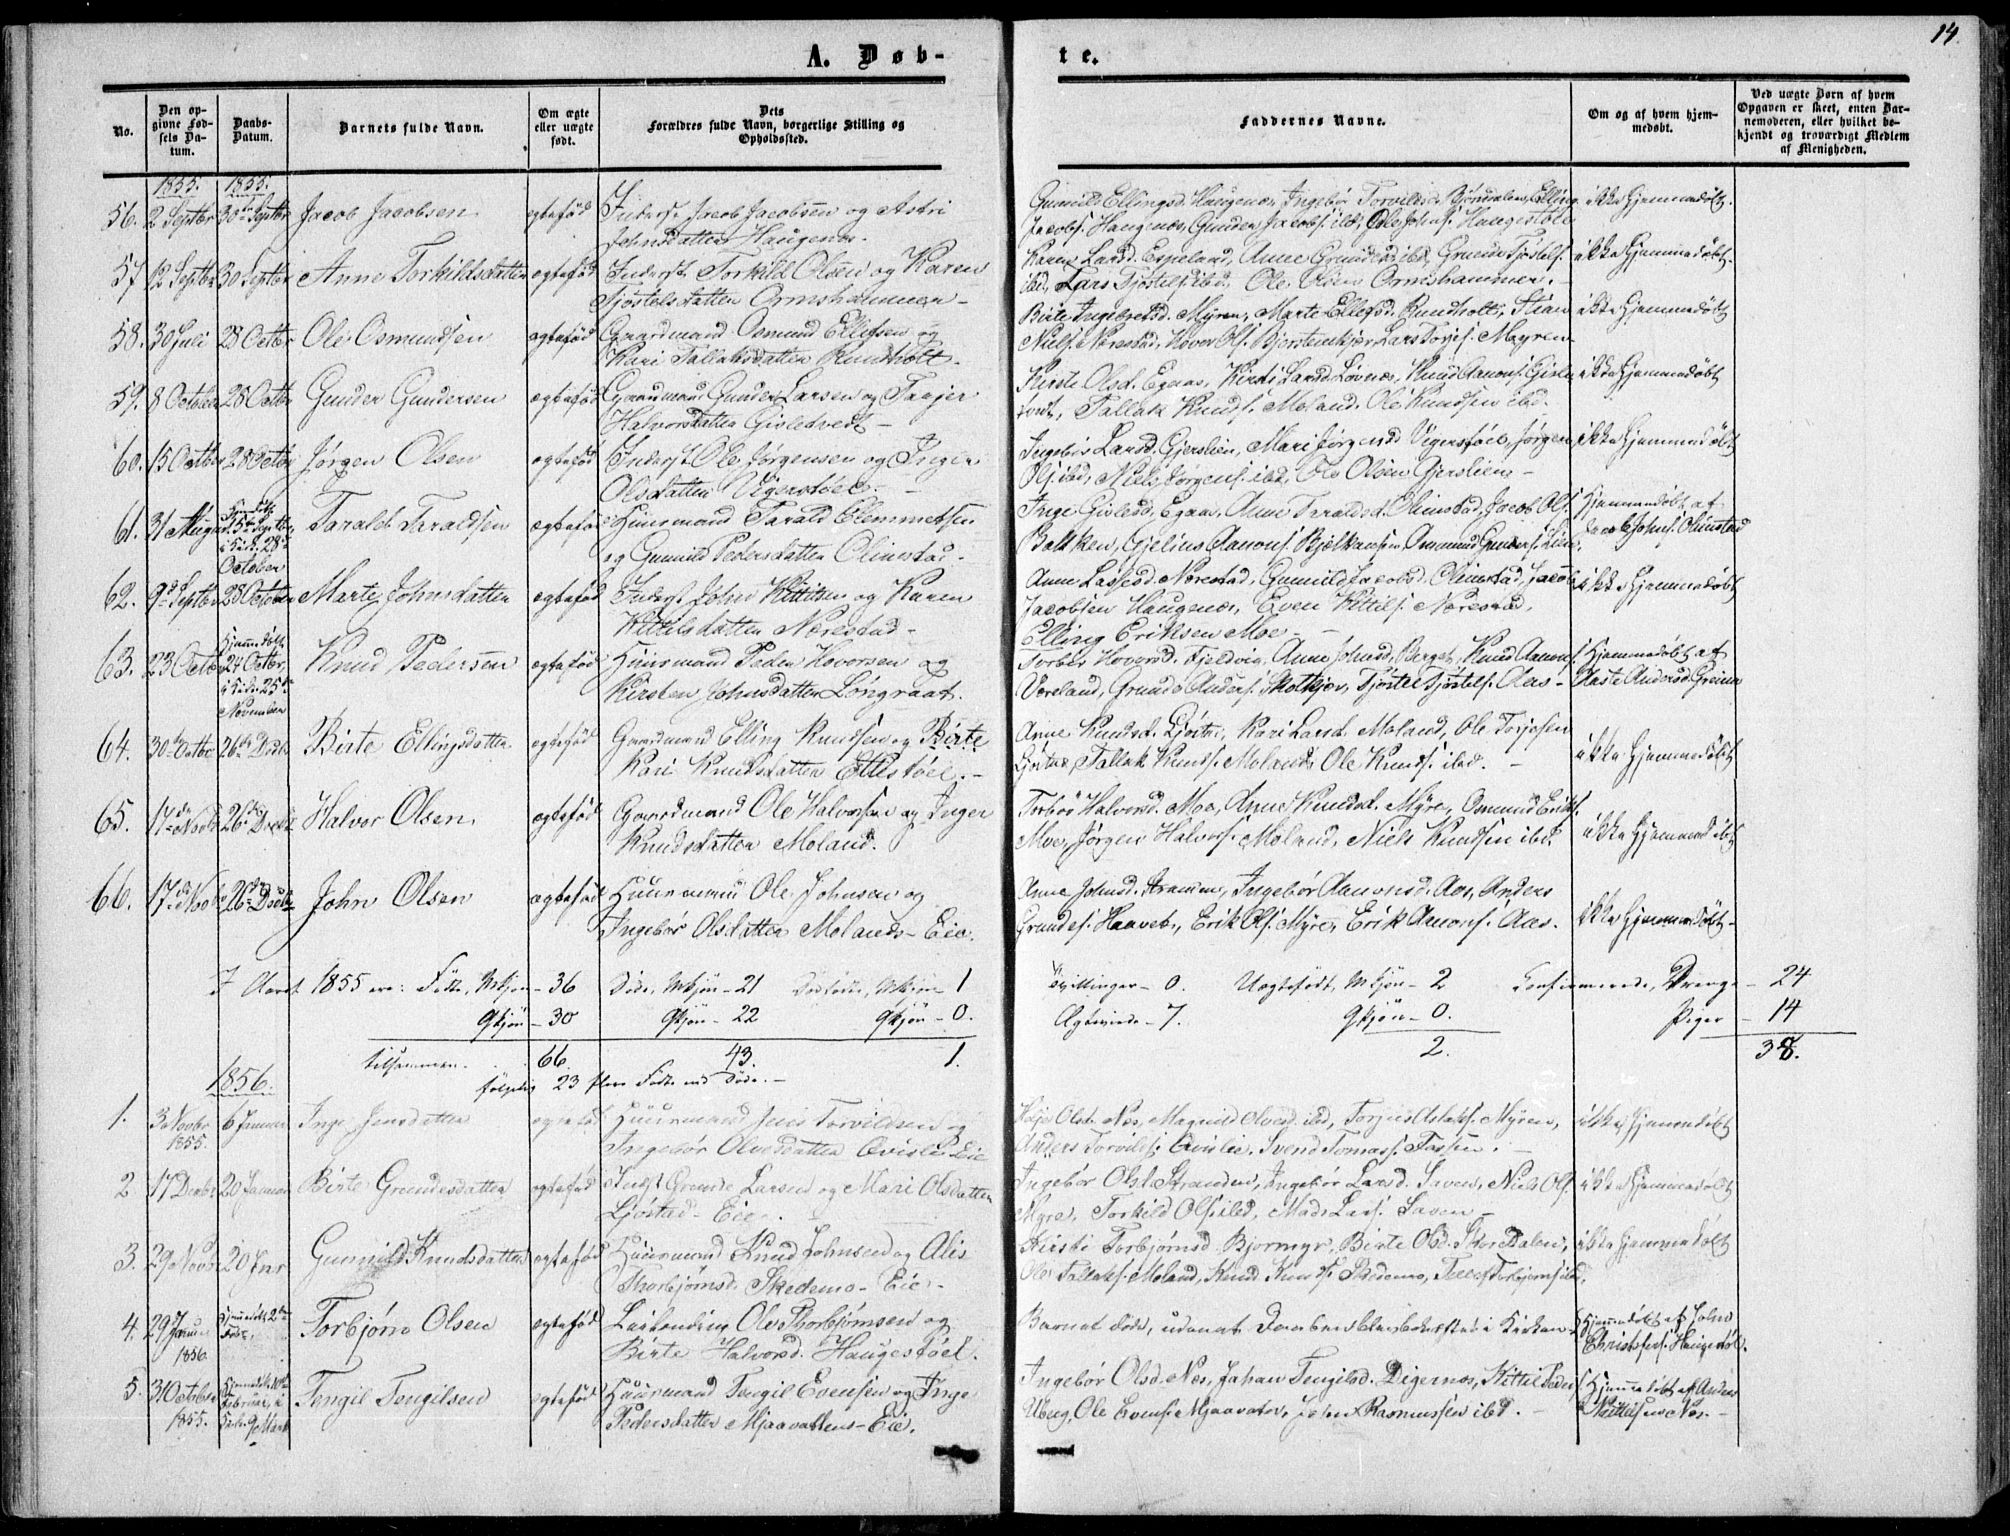 14.
A. Døb-
te.
No.
Den op-
givne Fød-
sels Da-
tum.
Daabs-
Datum.
Barnets fulde Navn.
Om ægte
eller uægte
født.
Dets
Forældres fulde Navn, borgerlige Stilling og
Opholdssted.
Faddernes Navne.
Om og af hvem hjem-
medøbt.
Ved uægte Børn af hvem
Opgaven er skeet, enten Bar-
nemoderen, eller hvilket be-
kjendt og troværdigt Medlem
af Menigheden.
1855. 1855.
56. 2 Septbr 30 Septbr Jacob Jacobsen ægtefød Inderst Jacob Jacobsen og Astri
Johnsdatter Haugenæs.
Gunild Ellingsd. Haugenæs, Ingebør Torvildsd. Bjørndalen, Elling
Jacobs. Haugenæs, Gunder Jacobs. ibd., Ole Johns. Haugestøl
ikke Hjemmedøbt.
57 12 Septbr 30 Septbr Anne Torkildsdatter ægtefød Inderst Torkild Olsen og Karen
Tjøstelsdatter Ormshammer
Karen Larsd. Espeland, Anne Grundesd. ibd., Grunde Tjøstels.
ibd., Lars Tjøstels. ibd., Ole Olsen Ormshammer.
ikke Hjemmedøbt.
58. 30 Juli 28 Octbr Ole Osmundsen ægtefød Gaardmand Osmund Ellefsen og
Kari Tallaksdatter Rundholt.
Birte Ingebretsd. Myren, Marte Ellefsd. Rundholt, Stian
Niels. Nærestad, Hover Ols. Bjorstenkjær, Lars Torjes. Myren
ikke Hjemmedøbt
59. 8 October 28 Octbr Gunder Gundersen ægtefød Gaardmand Gunder Larsen og Taajer
Halvorsdatter Gisledvedt
Kirste Olsd. Egaas, Kirsti Larsd. Løvnæs, Knud Aanons. Gisle
tvedt, Tallak Knuds. Moland. Ole Knudsen ibd.
ikke Hjemmedøbt
60. 15 October 28 Octbr Jørgen Olsen ægtefød Inderst Ole Jørgensen og Inger
Olsdatter Vigerstøel
Ingebør Larsd. Gjerslien, Mari Jørgensd. Vigerstøel, Jørgen
Ols. ibd., Niels Jørgens. ibd., Ole Olsen Gjerslien
ikke Hjemmedøbt
61. 31 August Hjemdøbt 5te Septbr
i Kirke 28de
October
Tarald Taraldsen ægtefød Huusmand Tarald Clemmetsen
og Gunild Pedersdatter Olimstad.
Inge Gislesd. Egaas, Anne Taraldsd. Olimstad, Jacob Ols.
Bakken, Gjelius Aanons. Bjelkaasen, Osmund Gunders. Lien
Hjemmedøbt af
Jacob Johns. Olimstad
62. 9de Septbr 28 October Marte Johnsdatter ægtefød Inderst John Kittilsen og Karen
Kittilsdatter Nærestad
Anne Lassesd. Nærestad, Gunild Jacobsd. Olimstad, Jacob
Jacobsen Haugenæs, Even Kittils. Nærestad,
Elling Eriksen Moe
ikke Hjemmedøbt
63. 23 Octbr Hjemmedøbt
24 Octbr,
i Kirke 25de
November
Knud Pedersen ægtefød Huusmand Peder Hoversen og
Kirsten Johnsdatter Longraat.
Torbør Hoversd. Fjeldvig, Anne Johnsd. Berget, Knud Aanons.
Væreland, Grunde Anders. Skotkjær, Tjøstel Tjøstels. Aas
Hjemmedøbt af
Aaste Andersd. Greima
64. 30de Octbr 26de Decbr Birte Ellingsdatter ægtefød Gaardmand Elling Knudsen og Birte
Kari Knudsdatter Ellestøel.
Anne Knudsd. Gjøstøe, Kari Larsd. Moland, Ole Torjesen
Gjøstøe, Tallak Knuds. Moland, Ole Knuds. ibd.
ikke Hjemmedøbt
65. 17de Novbr 26de Decbr Halvor Olsen. ægtefød Gaardmand Ole Halvorsen og Inger
Knudsdatter Moland.
Torbør Halvorsd. Moe, Anne Knudsd. Myre, Osmund Eriks.
Moe, Jørgen Halvors. Moland, Niels Knudsen ibd.
ikke Hjemmedøbt
66. 17de Novbr 26de Decbr John Olsen ægtefød Huusmand Ole Johnsen og
Ingebør Olsdatter Molands-Eie.
Anne Johnsd. Strammen, Ingebør Aanonsd. Aas, Anders
Grundes. Haavet, Erik Ols. Myre, Erik Aanons. Aas.
ikke Hjemmedøbt
I Aaret 1855 ere: Fødte, Mkjøn – 36 Døde, Mkjøn – 21 Dødfødte, Mkjøn – 1
Tvillinger – 0. Uægtefødt, Mkjøn – 2 Confirmerede, Drenge – 24
Qkjøn – 30 Qkjøn – 22 Qkjøn – 0.
Ægteviede – 7. Qkjøn – 0. Piger – 14
tilsammen 66 43. 1. 2. 38.
følgelig 23 flere Fødte end Døde.
1856.
1. 3 Novbr
1855.
6 Januar Inge Jensdatter ægtefød Huusmand Jens Torvildsen og
Ingebør Olsdatter Qvislie Eie
Olsdt. Næs, Magnild Olsd. ibd., Torjus Aslaks. Myren,
Anders Torvilds. Qvislie, Svend Tomass.
ikke Hjemmedøbt
2 17 Decbr 20 Januar Birte Grundesdatter ægtefød Inderst Grunde Larsen og Mari Olsdatter
Ljøstad-Eie.
Ingebør Olsd. Stranden, Ingebør Larsd. Saven, Niels Ols.
Myre, Torkild Ols. ibd., Mads Lars. Saven
ikke Hjemmedøbt
3. 29 Novbr 20 Jnr Gunnild Knudsdatter ægtefød Huusmand Knud Johnsen og Alis
Thorbjørnsd. Skedemo-Eie.
Kirsti Torbjørnsd. Bjormyr, Birte Olsd. Stordalen,
Ole Tallaks. Moland, Knud Knuds. Skedemo, Tellef Torbjørns. ibd.
ikke Hjemmedøbt
4. 29 Januar
1856
Hjemmedøbt
Døde.
Torbjørn Olsen ægtefød Leilending Ole Thorbjørnsen og
Birte Halvorsd. Haugestøel.
Barnet døde, uden at Daaben blev bekræftet i Kirken.
Hjemmedøbt af John
Christofers. Haugestøl.
5. 31 October
1855.
Hjemmedøbt
Februar, i
Kirke 9 Marts
Tengil Tengilsen ægtefød Huusmand Tengil Evensen og Inge
Pedersdatter Mjaavattens-Eie.
Ingebør Olsd. Næs, Johan Tengilsd. Digernæs, Kittil Peders.
Uberg, Ole Evens. Mjaavaten, John Rasmussen ibd.
Hjemmedøbt af Anders
Kittilsen Næs.